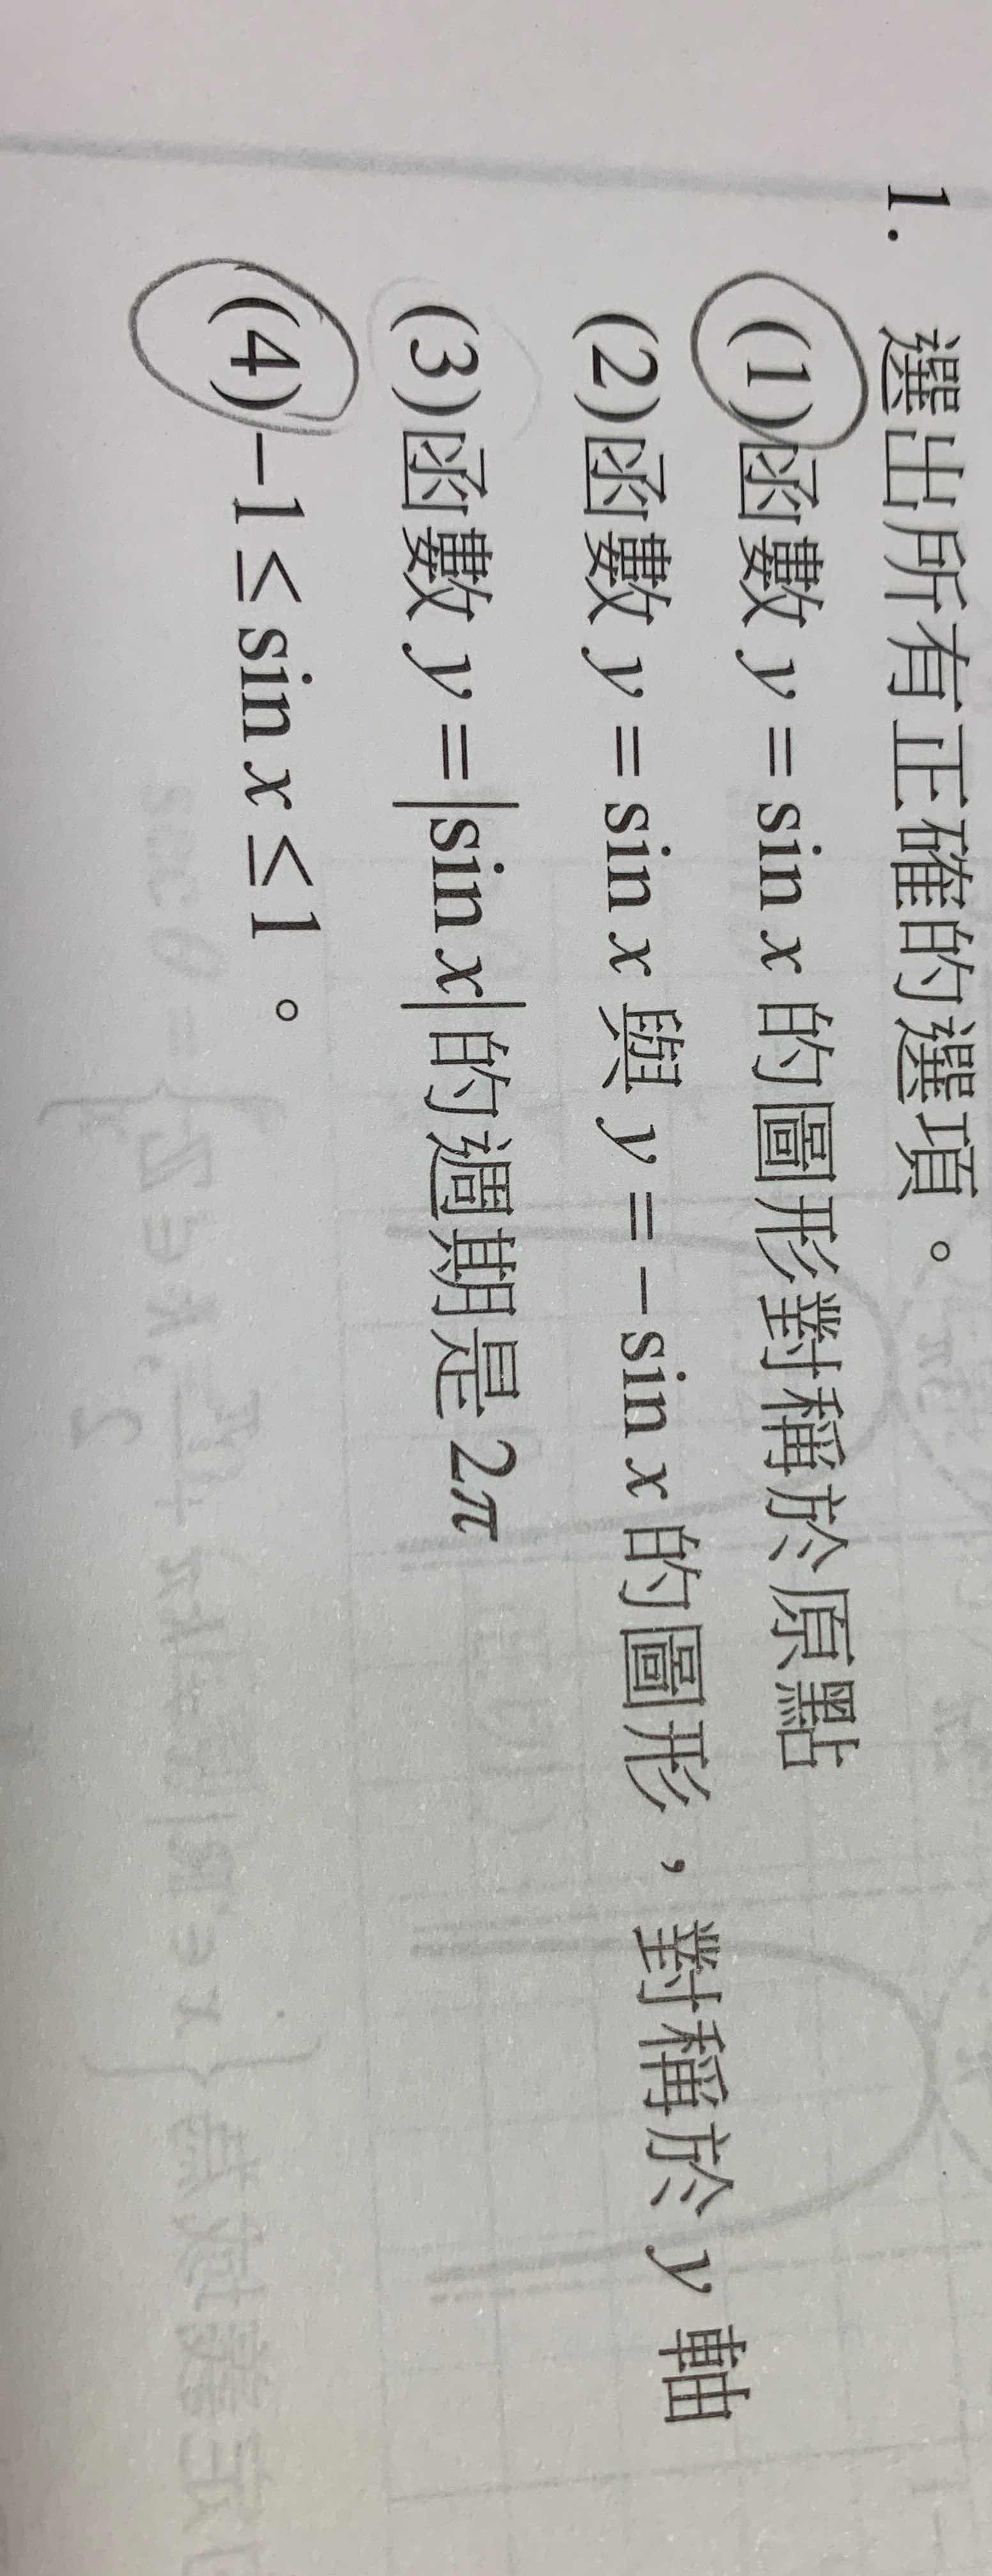 1. 選出所有正確的選項。
(1)函數 y = sin x 的圖形對稱於原點
(2)函數 y = sin x 與 y = − sin x 的圖形，對稱於 y 軸
(3)函數 y = |sin x| 的週期是 2π
(4) −1 ≤ sin x ≤ 1。